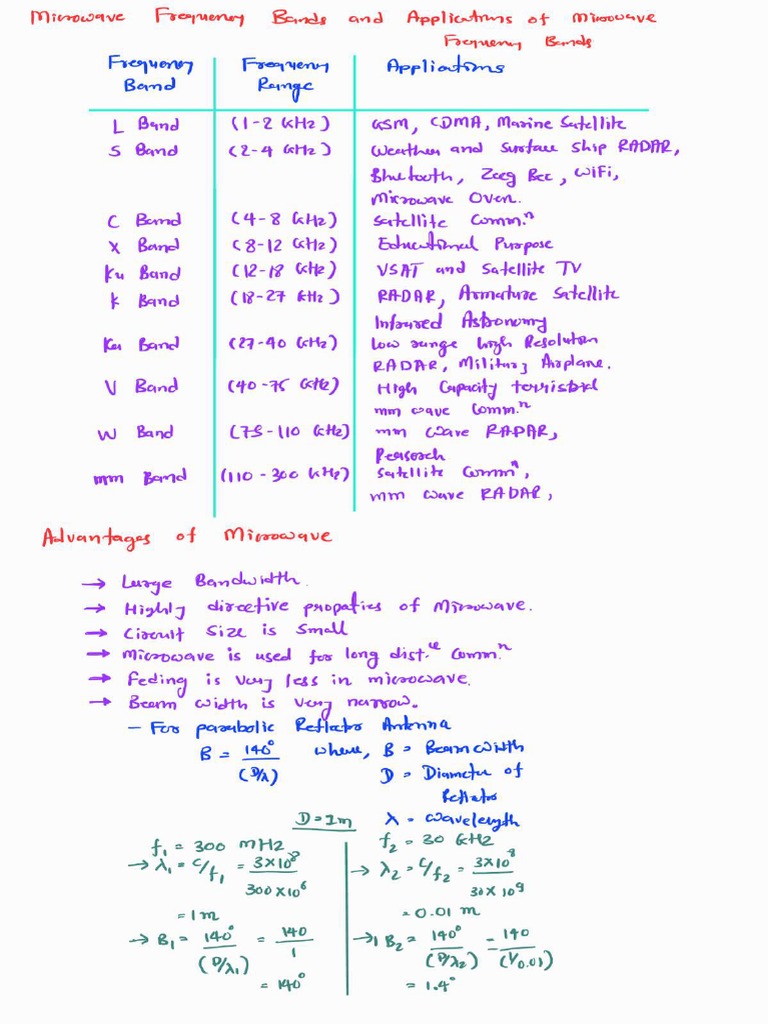 Microwave Frequency Bands and Applications of Microwave
Frequency Bands
Frequency Band | Frequency Range | Applications
L Band | (1-2 GHz) | GSM, CDMA, Marine Satellite
S Band | (2-4 GHz) | Weather and Surface Ship RADAR,
Bluetooth, Zeeg Bee, WiFi,
Microwave Oven.
C Band | (4-8 GHz) | Satellite Comm.n
X Band | (8-12 GHz) | Educational Purpose
Ku Band | (12-18 GHz) | VSAT and Satellite TV
K Band | (18-27 GHz) | RADAR, Armature Satellite
Infrared Astronomy
Ka Band | (27-40 GHz) | Low range high Resolution
RADAR, Military Airplane.
V Band | (40-75 GHz) | High Capacity terristrial
mm wave Comm.n
W Band | (75-110 GHz) | mm wave RADAR,
mm Band | (110-300 GHz) | Satellite Commn,
mm wave RADAR,
Advantages of Microwave
→ Large Bandwidth.
→ Highly directive propaties of Microwave.
→ Circuit Size is small
→ Microwave is used for long dist.ce Comm.n
→ Feding is very less in microwave.
→ Beam width is very narrow.
- For parabolic Reflector Antenna
B = 140°/(D/λ) where, B = Beamwidth
D = Diameter of
Reflector
λ = wavelength
D=1m
f₁ = 300 MHz
→ λ₁ = c/f₁ = 3×10⁸/300×10⁶
= 1m
→ B₁ = 140°/(D/λ₁) = 140/1
= 140°
f₂ = 30 GHz
→ λ₂ = c/f₂ = 3×10⁸/30×10⁹
= 0.01 m
→ B₂ = 140°/(D/λ₂) = 140/(1/0.01)
= 1.4°